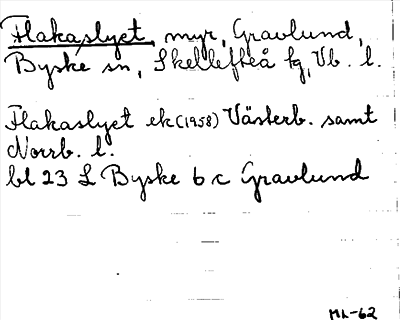 Flakaslyet, myr, Gravlund,
Byske sn, Skellefteå kg, Vb. l.
Flakaslyet ek (1958) Västerb. samt
Norrb. l.
bl 23 L Byske 6 c Gravlund
ML-62